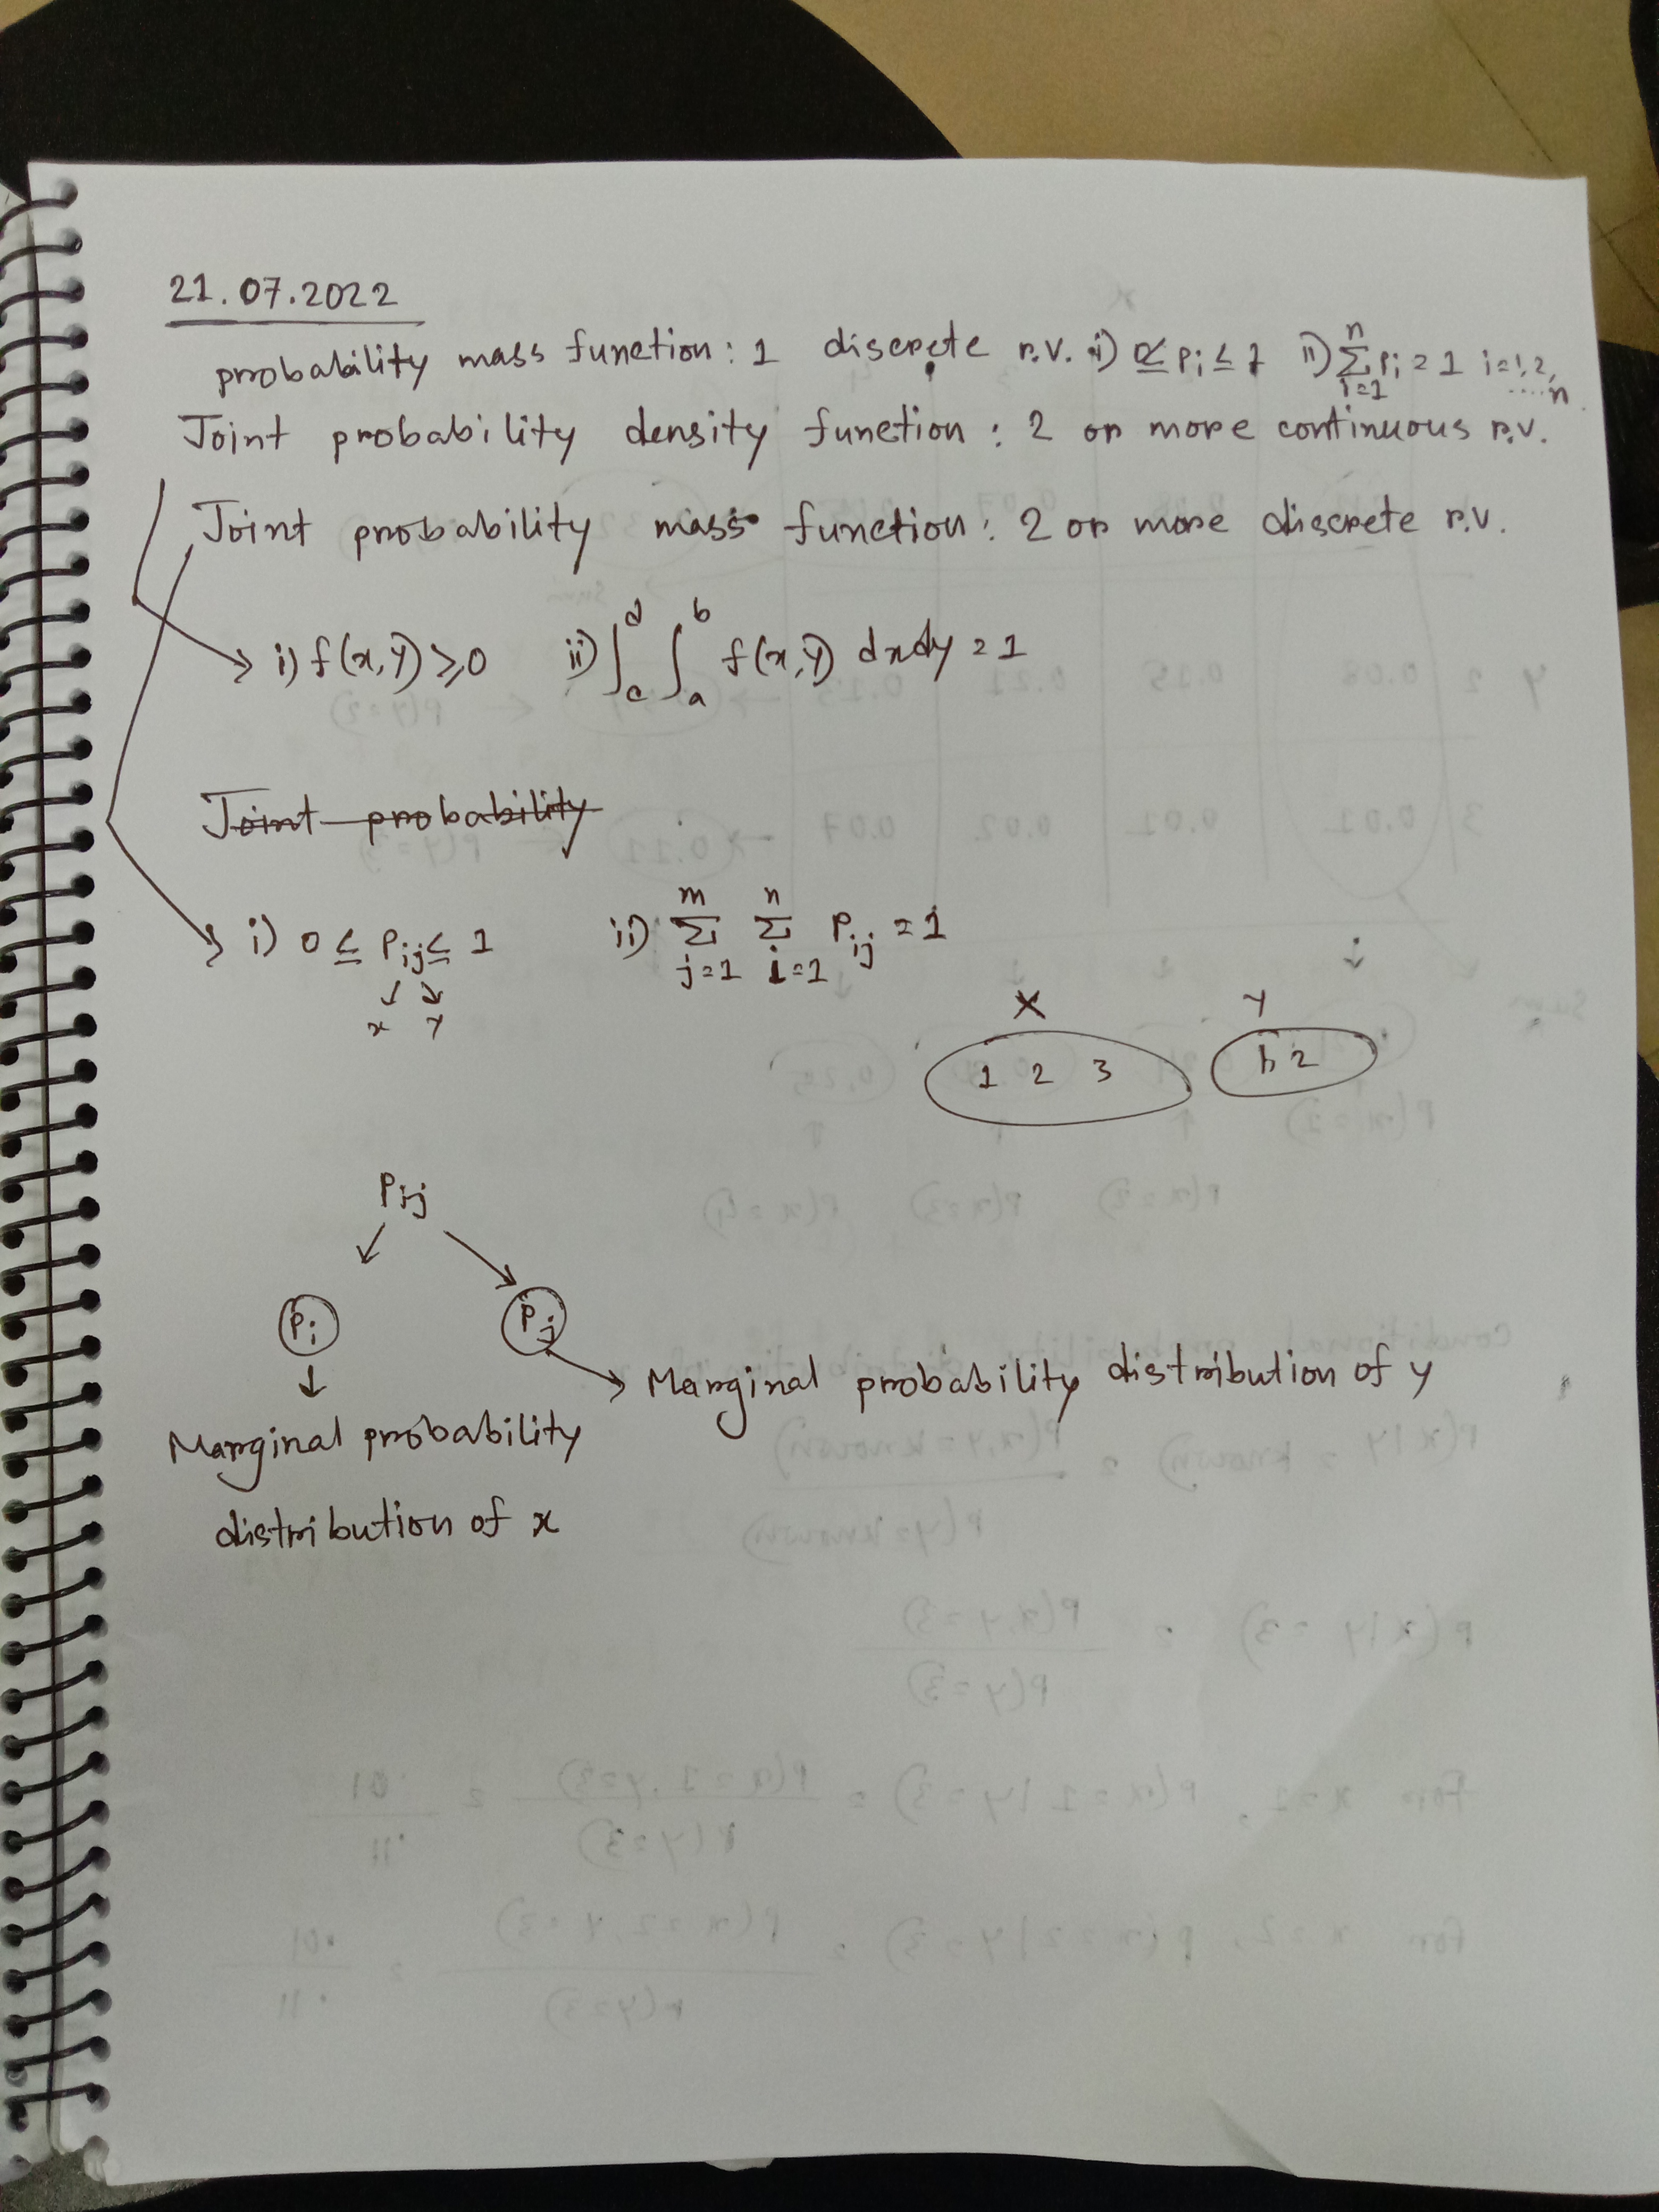 21.07.2022
probability mass function: 1 discrete r.v. i) 0≤ Pi ≤ 1 ii) n∑i=1 Pi = 1 i=1,2,....n.
Joint probability density function: 2 or more continuous r.v.
Joint probability mass function: 2 or more discrete r.v.
i) f(x,y) ≥ 0 ii) ∫_c^d ∫_a^b f(x,y) dxdy = 1
Joint probability
i) 0 ≤ Pij ≤ 1 ii) m∑j=1 n∑i=1 Pij = 1
x y
X Y
1 2 3 1, 2
Pij
Pi Pj
Marginal probability distribution of y
Marginal probability
distribution of x